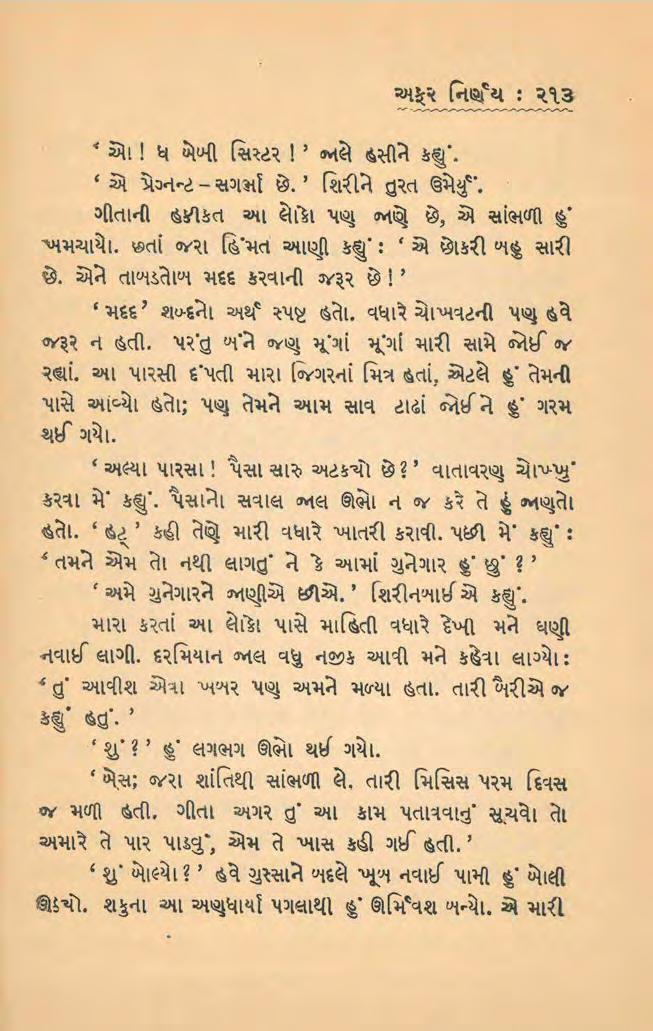 અફર નિર્ણય : ૨૧૩
‘ ઓ! ધ બેબી સિસ્ટર ! ’ જાલે હસીને કહ્યું.
‘ એ પ્રેગ્નન્ટ – સગર્ભા છે. ’ શિરીને તુરત ઉમેર્યું.
ગીતાની હકીકત આ લોકો પણ જાણે છે, એ સાંભળી હું
ખમચાયો. છતાં જરા હિંમત આણી કહ્યું : ‘ એ છોકરી બહુ સારી
છે. એને તાબડતોબ મદદ કરવાની જરૂર છે ! ’
‘ મદદ ’ શબ્દનો અર્થ સ્પષ્ટ હતો. વધારે ચોખવટની પણ હવે
જરૂર ન હતી. પરંતુ બંને જણ મૂંગાં મૂંગાં મારી સામે જોઈ જ
રહ્યાં. આ પારસી દંપતી મારા જિગરનાં મિત્ર હતાં, એટલે હું તેમની
પાસે આવ્યો હતો; પણ તેમને આમ સાવ ટાઢાં જોઈને હું ગરમ
થઈ ગયો.
‘ અલ્યા પારસા ! પૈસા સારુ અટક્યો છે ? ’ વાતાવરણ ચોખ્ખું
કરવા મેં કહ્યું. પૈસાનો સવાલ જાલ ઊભો ન જ કરે તે હું જાણતો
હતો. ‘ હટ્ ’ કહી તેણે મારી વધારે ખાતરી કરાવી. પછી મેં કહ્યું :
‘ તમને એમ તો નથી લાગતું ને કે આમાં ગુનેગાર હું છું ? ’
‘ અમે ગુનેગારને જાણીએ છીએ. ’ શિરીનબાઈએ કહ્યું.
મારા કરતાં આ લોકો પાસે માહિતી વધારે દેખી મને ઘણી
નવાઈ લાગી. દરમિયાન જાલ વધુ નજીક આવી મને કહેવા લાગ્યો :
‘ તું આવીશ એવા ખબર પણ અમને મળ્યા હતા. તારી બૈરીએ જ
કહ્યું હતું. ’
‘ શું ? ’ હું લગભગ ઊભો થઈ ગયો.
‘ બેસ; જરા શાંતિથી સાંભળી લે. તારી મિસિસ પરમ દિવસ
જ મળી હતી. ગીતા અગર તું આ કામ પતાવવાનું સૂચવો તો
અમારે તે પાર પાડવું, એમ તે ખાસ કહી ગઈ હતી. ’
‘ શું બોલ્યો ? ’ હવે ગુસ્સાને બદલે ખૂબ નવાઈ પામી હું બોલી
ઊઠ્યો. શકુના આ અણધાર્યા પગલાથી હું ઊર્મિવશ બન્યો. એ મારી